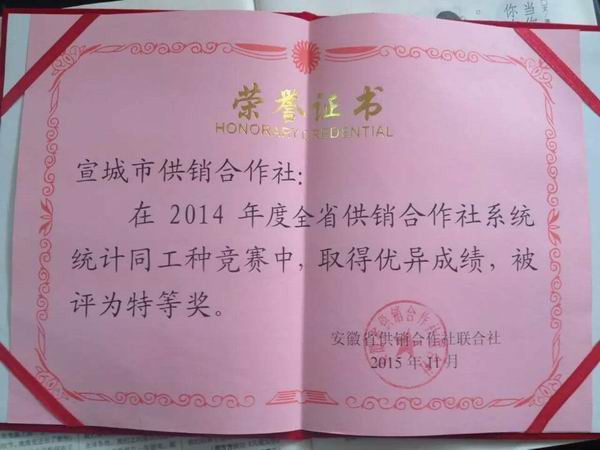 你当
荣誉证书
HONORARY CREDENTIAL
宣城市供销合作社:
在 2014 年度全省供销合作社系统
统计同工种竞赛中，取得优异成绩，被
评为特等奖。
安徽省供销合作社联合社
2015 年 11 月